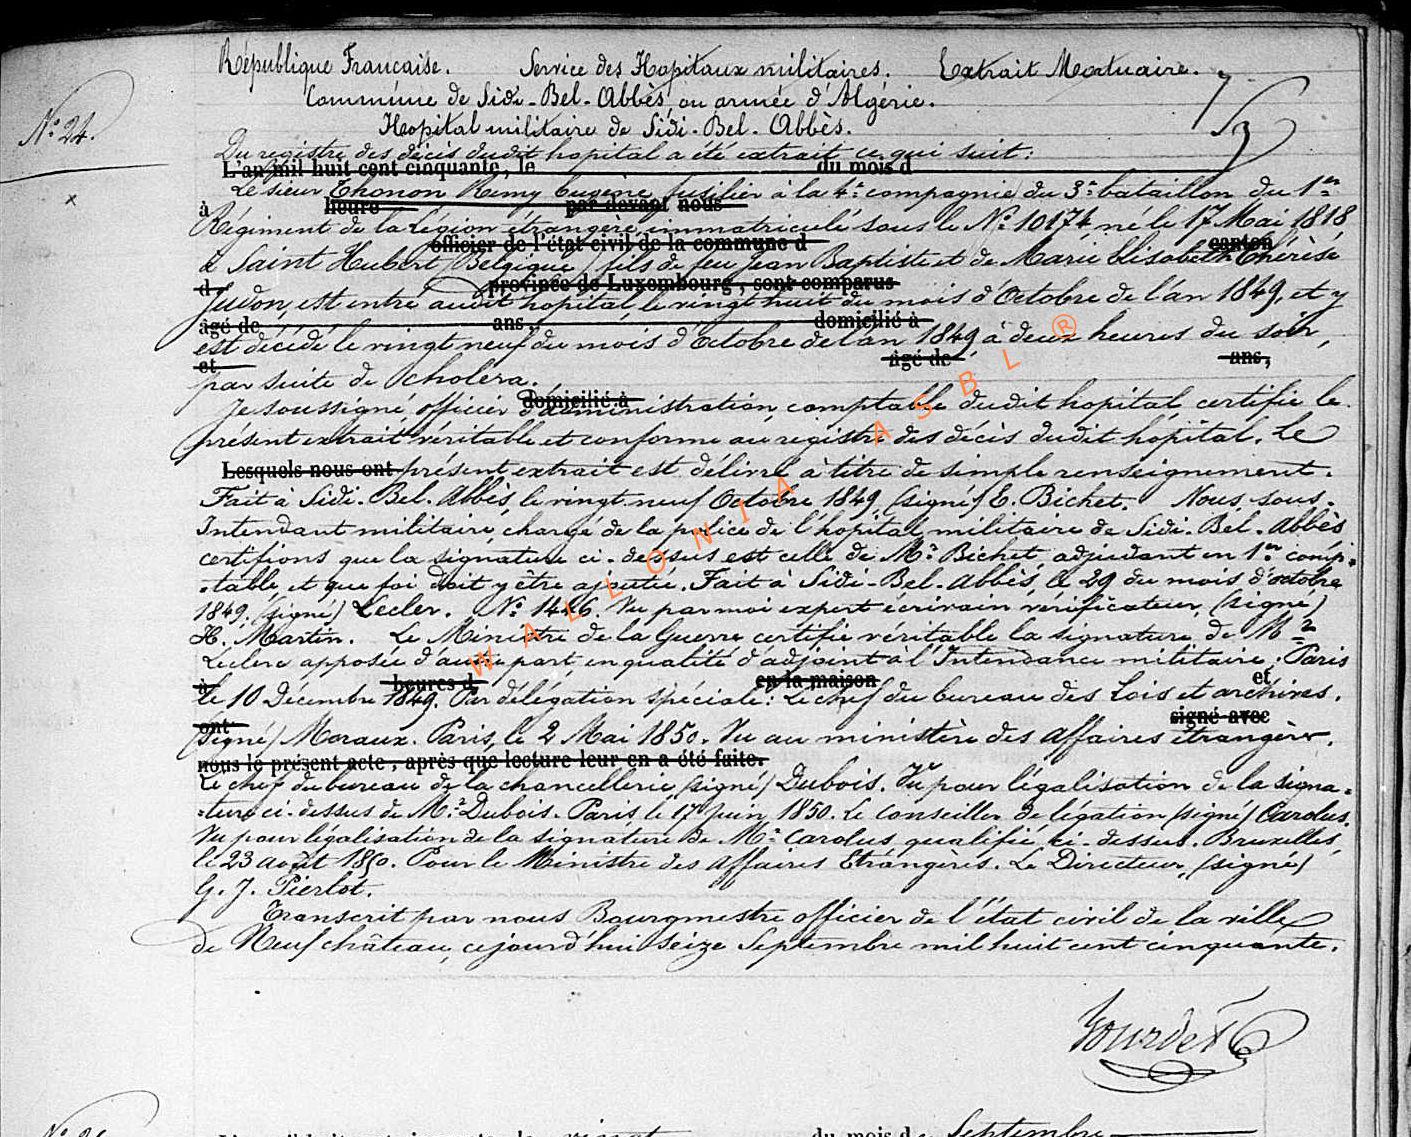 République Francaise. Service des Hopitaux militaires. Extrait Mortuaire.
Commune de Sidi-Bel-Abbès, ou armée d'Algérie.
N° 24.
Hopital militaire de Sidi-Bel-Abbès.
Du registre des décès dudit hopital a été extrait ce qui suit:
L'an mil huit cent cinquante, le du mois d
Le sieur Thonon Remy Eugène, fusilier à la 4e compagnie du 3e bataillon du 1er
à heure par devant nous
Régiment de la Légion étrangère, immatriculé sous le N° 10174 né le 17 Mai 1818
officier de l'état civil de la commune d canton
à Saint Hubert (Belgique) fils de feu Jean Baptiste et de Marie Elisabeth Thérèse
d province de Luxembourg, sont comparus
Judon, est entré audit hopital, le vingt huit du mois d'Octobre de l'an 1849, et y
âgé de ans, domicilié à
est décédé le vingt neuf du mois d'Octobre de l'an 1849 à deux heures du soir,
et âgé de ans,
par suite de choléra.
domicilié à
Je soussigné officier d'administration comptable dudit hopital, certifie le
présent extrait véritable et conforme au régistre des décès dudit hopital. Le
Lesquels nous ont présent extrait est délivré à titre de simple renseignement.
Fait à Sidi-Bel-Abbès, le vingt neuf Octobre 1849, (signé) E. Bichet. Nous, sous-
Intendant militaire, chargé de la police de l'hopital militaire de Sidi-Bel-Abbès
certifions que la signature ci-dessus est celle de Mr Bichet, adjudant en 1er comp-
-table, et que foi doit y être ajoutée. Fait à Sidi-Bel-Abbès, le 29 du mois d'octobre
1849. (signé) Lecler. N° 1446. Vu par moi expert écrivain vérificateur, (signé)
H. Martin. Le Ministre de la Guerre certifie véritable la signature de Mr
Leclerc apposée d'autre part en qualité d'adjoint à l'Intendance militaire; Paris
à heures d en la maison et
le 10 Décembre 1849. Par délégation spéciale: Le chef du bureau des Lois et archives.
ont signé avec
(signé) Moraux. Paris, le 2 Mai 1850. Vu au ministère des affaires étrangères.
nous le présent acte, après que lecture leur en a été faite.
Le chef du bureau de la chancellerie (signé) Dubois. Vu pour légalisation de la signa-
-ture ci-dessus de Mr Dubois. Paris le 17 Juin 1850. Le Conseiller de légation (signé) Carolus.
Vu pour légalisation de la signature de Mr Carolus, qualifié ci-dessus. Bruxelles,
le 23 août 1850. Pour le Ministre des Affaires Etrangères. Le Directeur, (signé)
G. J. Pierlot.
Transcrit par nous Bourgmestre officier de l'état civil de la ville
de Neufchâteau, cejourd'hui seize Septembre mil huit cent cinquante.
Gourdet
du mois de Septembre
WALLONIA ASBL ®